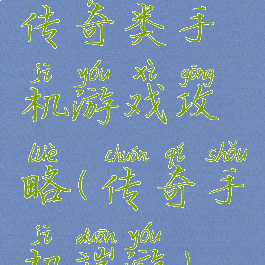 传奇类手
jī yóu xì gōng
机游戏攻
lüè chuán qí shǒu
略(传奇手
jī duān yóu
机端游)